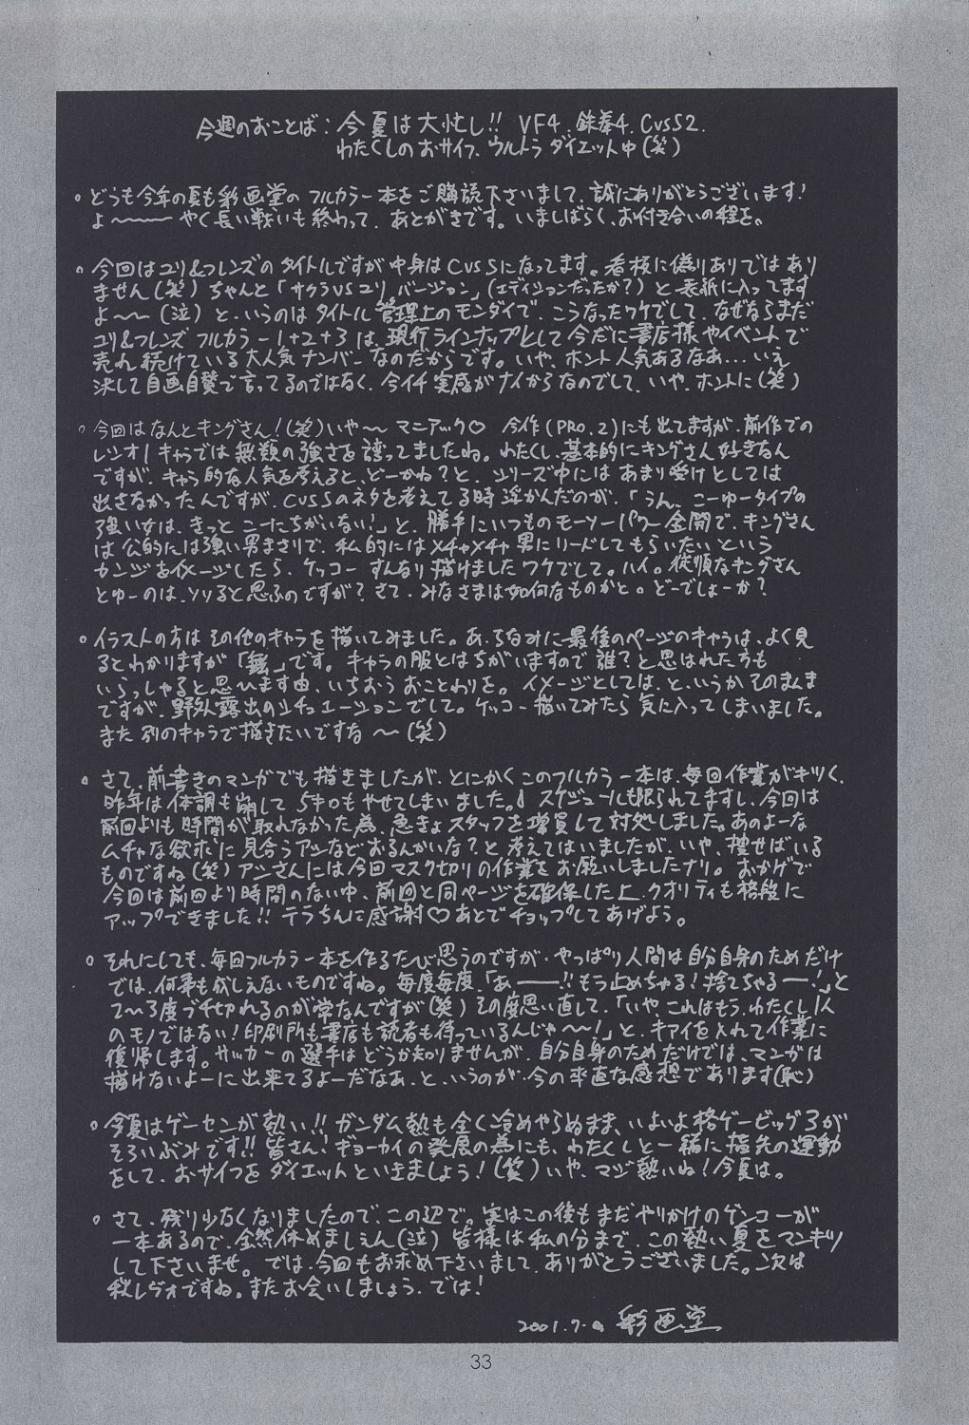 今週のおことば：今夏は大忙し!! VF4、鉄拳4、CvsS2、
わたくしのおサイフ、ウルトラダイエット中(笑)
○ どうも今年の夏も彩画堂のフルカラー本をご購読下さいまして、誠にありがとうございます!
よ〜〜〜やく長い戦いも終わって、あとがきです。いましばらく、お付き合いの程を。
○ 今回はユリ&フレンズのタイトルですが中身はCvsSになってます。看板に偽りありではあり
ません(笑) ちゃんと「サクラvsユリ バージョン」(エディションだったか?)と表紙に入ってます
よ〜〜(泣) と、いうのはタイトル管理上のモンダイで、こうなったワケでして、なぜならまだ
ユリ&フレンズ フルカラー1+2+3は、現行ラインナップとして今だに書店様やイベントで
売れ続けている大人気ナンバーなのだからです。いや、ホント人気あるなあ…いえ
決して自画自賛で言ってるのではなく、今イチ実感がナイからなのでして、いや、ホントに(笑)
○ 今回はなんとキングさん!(笑)いや〜マニアック♡ 今作(PRO.2)にも出てますが、前作での
レシオ1キャラでは無類の強さを誇ってましたね。わたくし、基本的にキングさん好きなん
ですが、キャラ的な人気を考えると、どーかね?と、シリーズ中にはあまり受けとしては
出さなかったんですが、CvsSのネタを考えてる時浮かんだのが、「うん、こーゆータイプの
強い女は、きっとこーにちがいない!」と、勝手にいつものモーソーパワー全開で、キングさん
は公的には強い男まさりで、私的にはメチャメチャ男にリードしてもらいたいという
カンジをイメージしたら、ケッコーすんなり描けましたワケでして。ハイ。従順なキングさん
とゆーのは、ソソると思ふのですが?さて、みなさまは如何なものかと。どーでしょーか?
○ イラストの方はその他のキャラを描いてみました。あ、ちなみに最後のページのキャラは、よく見
るとわかりますが「舞」です。キャラの服とはちがいますので誰?と思はれた方も
いらっしゃると思ひます由、いちおうおことわりを。イメージとしては、と、いうかそのまんま
ですが、野外露出のシチュエーションでして。ケッコー描いてみたら気に入ってしまいました。
また別のキャラで描きたいですな〜(笑)
○ さて、前書きのマンガでも描きましたが、とにかくこのフルカラー本は、毎回作業がキツく、
昨年は体調も崩して5キロもやせてしまいました。スケジュールも限られてますし、今回は
前回よりも時間が取れなかった為、急きょスタッフを増員して対処しました。あのよーな
ムチャな欲求に見合うアシなどおるんかいな?と考えてはいましたが、いや、捜せばいる
ものですね(笑) アシさんには今回マスク切りの作業をお願いしましたナリ。おかげで
今回は前回より時間のない中、前回と同ページを確保した上、クオリティも格段に
アップできました!! テラちんに感謝♡あとでチョップしてあげよう。
○ それにしても、毎回フルカラー本を作るたび思うのですが、やっぱり人間は自分自身のためだけ
では、何事も成しえないものですね。毎度毎度、「あ——!!もう止めちゃる!捨てちゃる——!」と
2〜3度ブチ切れるのが常なんですが(笑) その度思い直して、「いや、これはもう、わたくし1人
のモノではない!印刷所も書店も読者も待っているんじゃ〜〜!」と、キアイを入れて作業に
復帰します。サッカーの選手はどうか知りませんが、自分自身のためだけでは、マンガは
描けないよーに出来てるよーだなあ、と、いうのが、今の率直な感想であります(恥)
○ 今夏はゲーセンが熱い!! ガンダム熱も全く冷めやらぬまま、いよいよ格ゲービッグ3が
そろいぶみです!! 皆さん!ギョーカイの発展の為にも、わたくしと一緒に指先の運動
をして、おサイフをダイエットといきましょう!(笑) いや、マジ熱いね!今夏は。
○ さて、残り少なくなりましたので、この辺で。実はこの後もまだやりかけのゲンコーが
一本あるので、全然休めましぇん(泣) 皆様は私の分まで、この熱い夏をマンキツ
して下さいませ。では、今回もお求め下さいまして、ありがとうございました。次は
秋レヴォですね。またお会いしましょう、では!
2001.7. 彩画堂
33